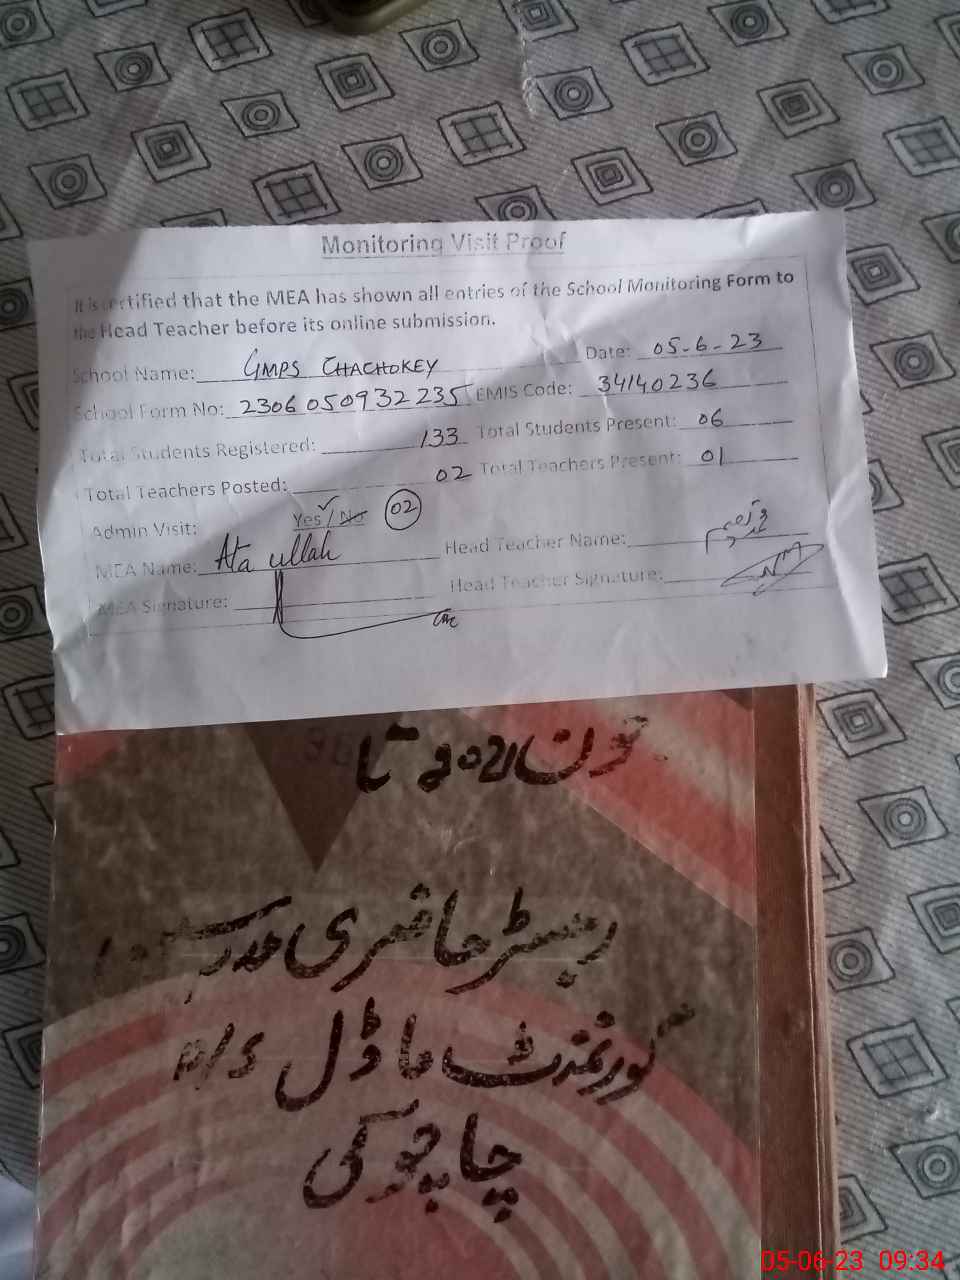 Monitoring Visit Proof
It is certified that the MEA has shown all entries of the School Monitoring Form to
the Head Teacher before its online submission.
School Name: GMPS CHACHOKEY Date: 05-6-23
School Form No: 2306050932235 EMIS Code: 34140236
Total Students Registered: 133 Total Students Present: 06
Total Teachers Posted: 02 Total Teachers Present: 01
Admin Visit: Yes / No 02
MEA Name: Ata ullah Head Teacher Name:
MEA Signature: Head Teacher Signature:
تا
رجسٹر حاضری مدرسین
گورنمنٹ ماڈل P/S
چاچوکی
05-06-23 09:34